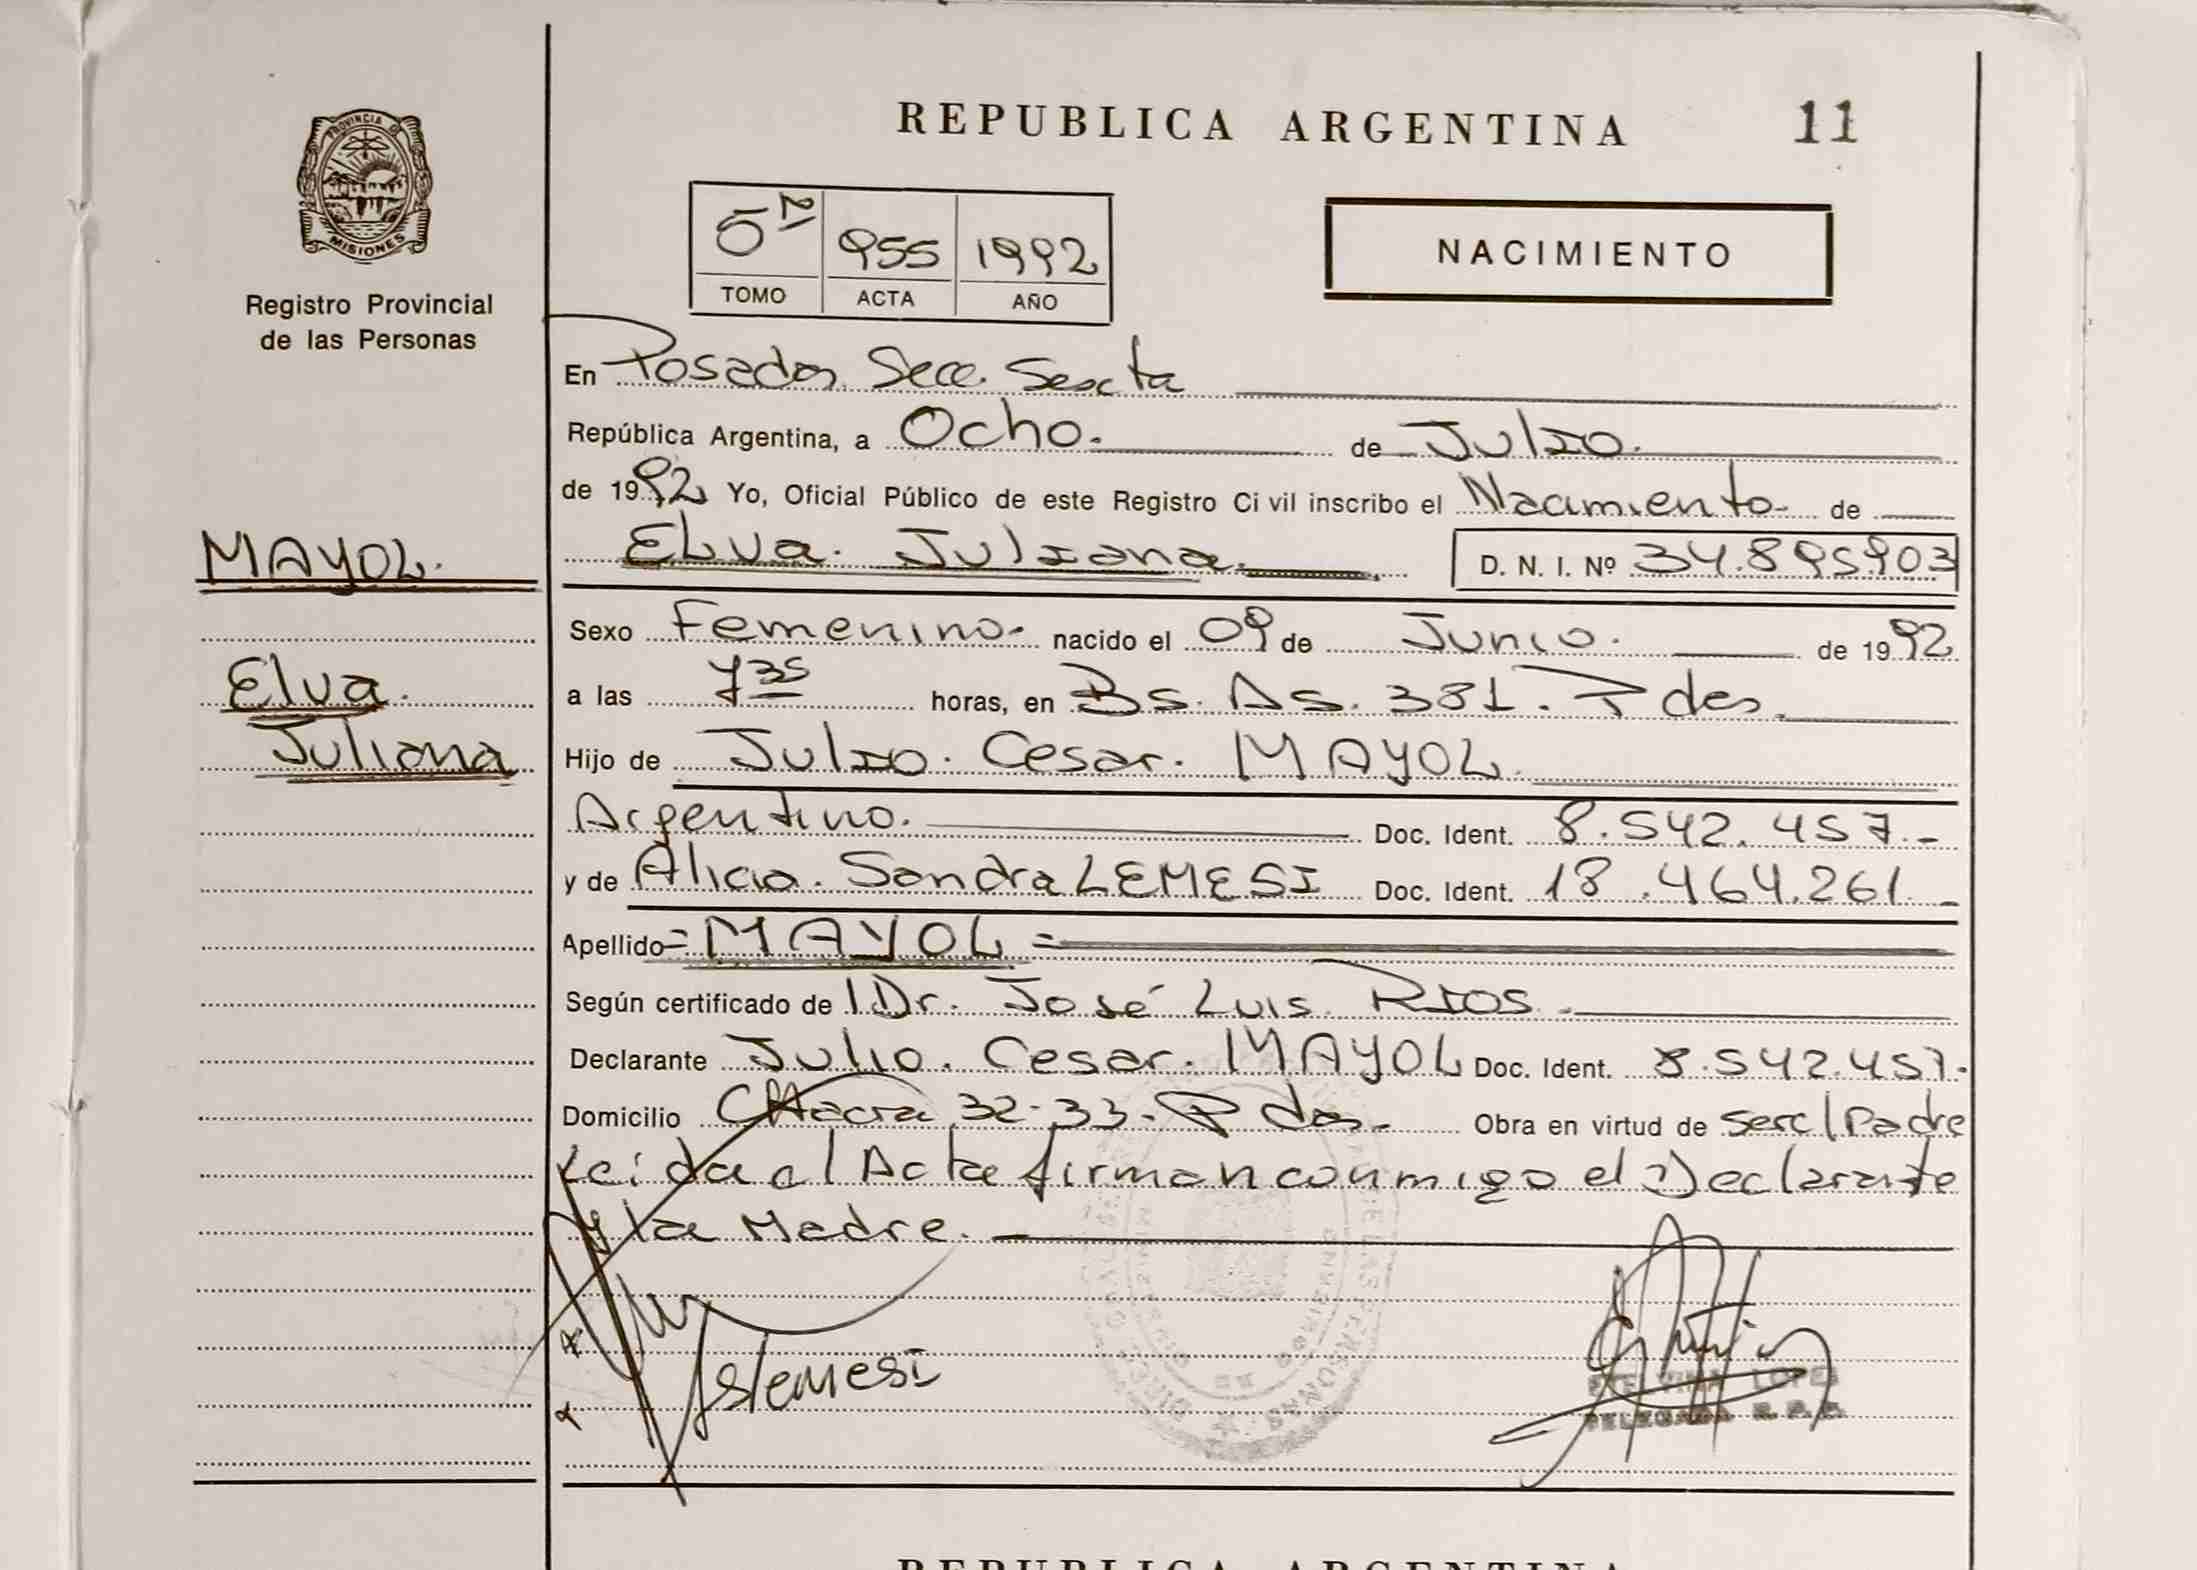 REPUBLICA ARGENTINA 11
PROVINCIA DE
MISIONES
Registro Provincial
de las Personas
955 1992
TOMO ACTA AÑO
NACIMIENTO
En Posadas Secc. Sexta
República Argentina, a Ocho. de Julio.
de 1992 Yo, Oficial Público de este Registro Civil inscribo el Nacimiento de
MAYOL.
Elva. Juliana. D. N. I. Nº 34.895903
Sexo Femenino nacido el 09 de Junio. de 1992
Elva.
Juliana
a las 7 35 horas, en Bs. As. 381. Pdas.
Hijo de Julio. Cesar. MAYOL
Argentino. Doc. Ident. 8.542.457.-
y de Alicia. Sandra LEMESI Doc. Ident. 18.464.261.-
Apellido = MAYOL =
Según certificado de Dr. José Luis RIOS.
Declarante Julio. Cesar. MAYOL Doc. Ident. 8.542.457.-
Domicilio Chacra 32-33. Pdas. Obra en virtud de ser el Padre
Leida el Acta firman conmigo el Declarante
y la Madre.
ASLemesi
LOPES
DELEGADA R. P. P.
REPUBLICA ARGENTINA